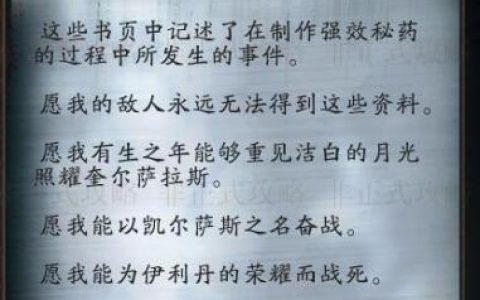 这些书页中记述了在制作强效秘药
的过程中所发生的事件。
愿我的敌人永远无法得到这些资料。
愿我有生之年能够重见洁白的月光
照耀奎尔萨拉斯。
愿我能以凯尔萨斯之名奋战。
愿我能为伊利丹的荣耀而战死。